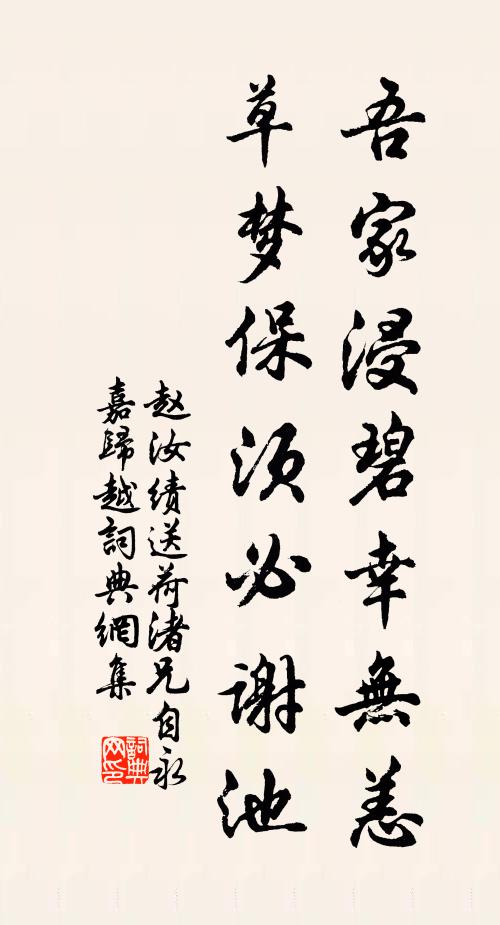 吾家浸碧幸無恙
草梦保须必謝池
赵汝绩送荷渚兄自永
嘉歸越詞典網集
詞典网印